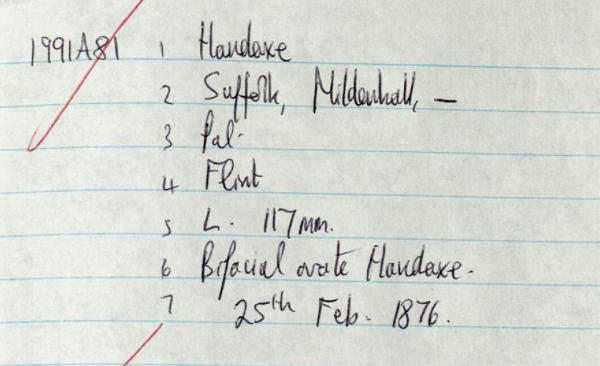 1991A81 1 Handaxe
2 Suffolk, Mildenhall, —
3 Pal.
4 Flint
5 L. 117mm.
6 Bifacial ovate Handaxe.
7 25th Feb. 1876.